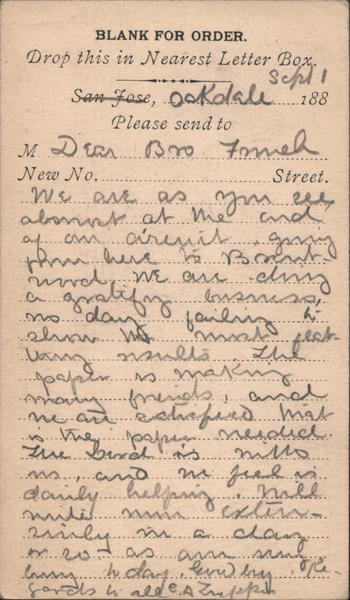 BLANK FOR ORDER.
Drop this in Nearest Letter Box.
Sept 1
San Jose, Oakdale 188
Please send to
M Dear Bro French
New No. Street.
We are as you see,
almost at the end
of our circuit, going
from here to Brent-
wood. We are doing
a gratifying business,
no day failing to
show the most flat-
tering results. The
paper is making
many friends, and
we are satisfied that
is the paper needed.
The Lord is with
us, and we feel is
daily helping. Will
write more exten-
sively in a day
or so - as am
to day. Good by. Re-
gards to all. C. A.